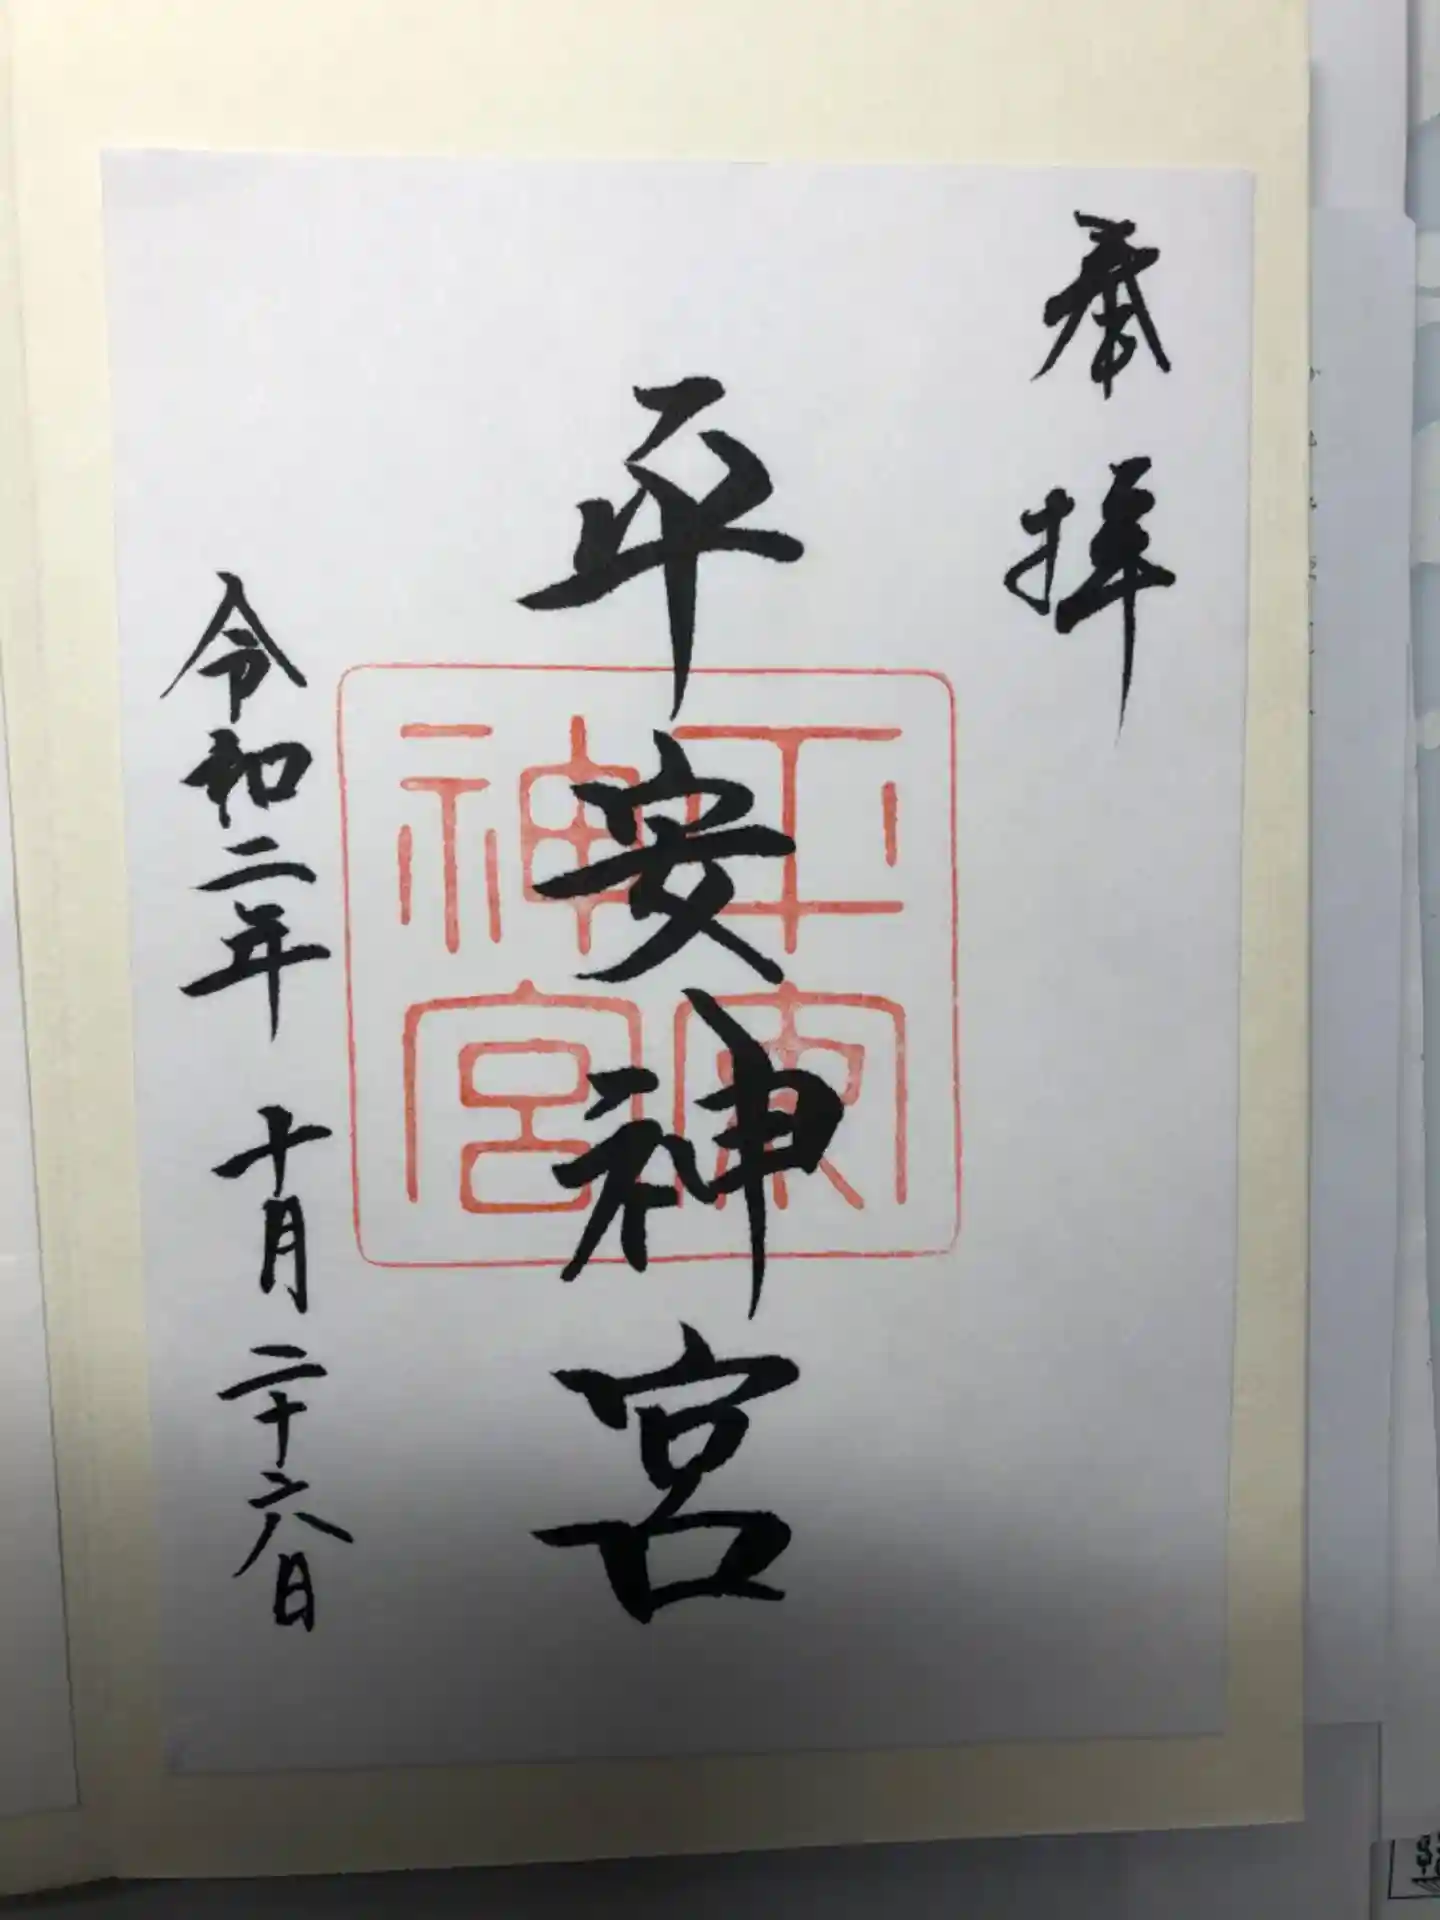 奉拝
平安神宮
平安神宮
令和二年 十月二十六日